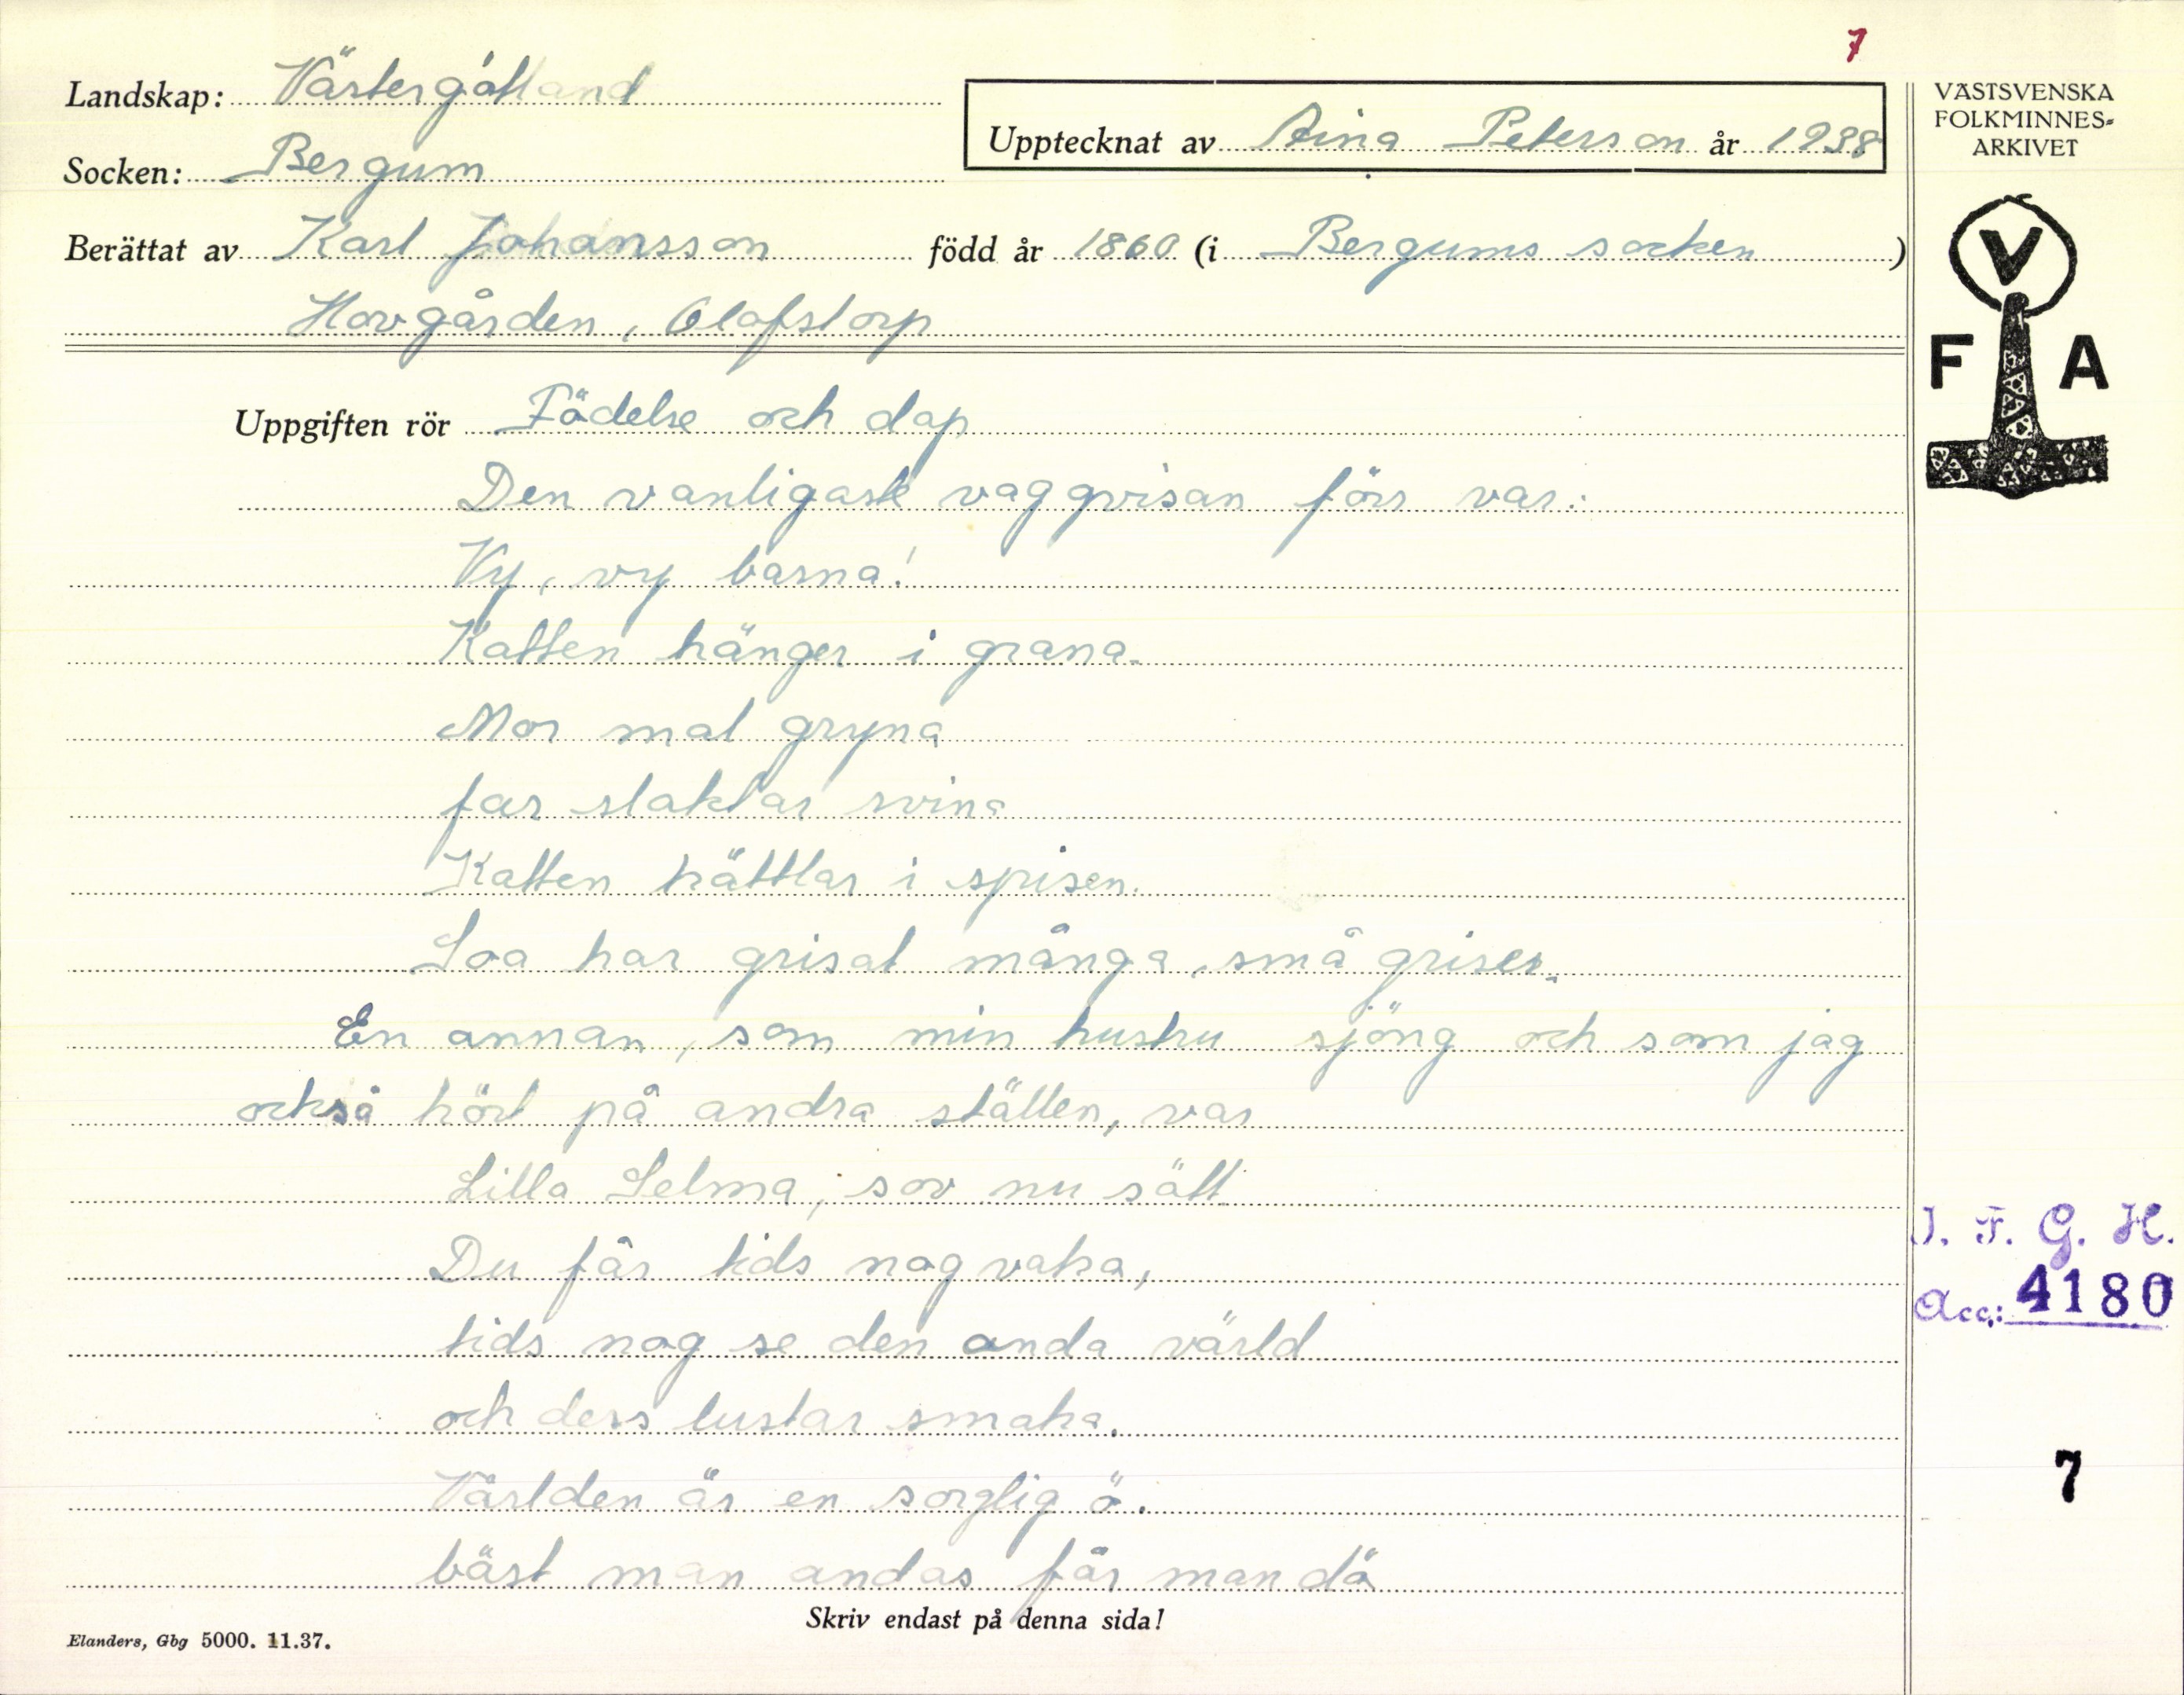 7
Landskap: Västergötland
Upptecknat av Aina Peterson år 1938
Socken: Bergum
Berättat av Karl Johansson född år 1860 (i Bergums socken)
Hovgården, Olofstorp
VÄSTSVENSKA
FOLKMINNES-
ARKIVET
V
F A
Uppgiften rör Födelse och dop
Den vanligaste vaggvisan förr var:
Vy, vy barna!
Katten hänger i grana.
Mor mal gryna
far slaktar svina
Katten hättlar i spisen.
Soa har grisat många små griser.
En annan, som min hustru sjöng och som jag
också hört på andra ställen, var
Lilla Selma, sov nu sött
Du får tids nog vaka,
tids nog se den onda värld
och ders lustar smaka.
Världen är en sorglig ö.
bäst man andas får man dö
Skriv endast på denna sida!
Elanders, Gbg 5000. 11.37.
I. F. G. H.
Acc: 4180
7